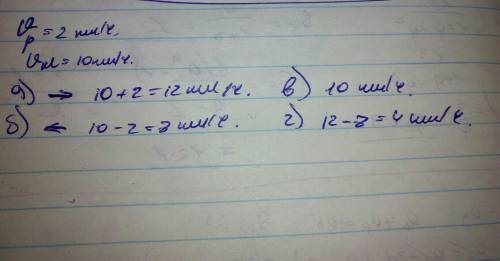 υр = 2 км/ч.
υм = 10 км/ч.
а) → 10 + 2 = 12 км/ч. в) 10 км/ч.
б) ← 10 - 2 = 8 км/ч. г) 12 - 8 = 4 км/ч.